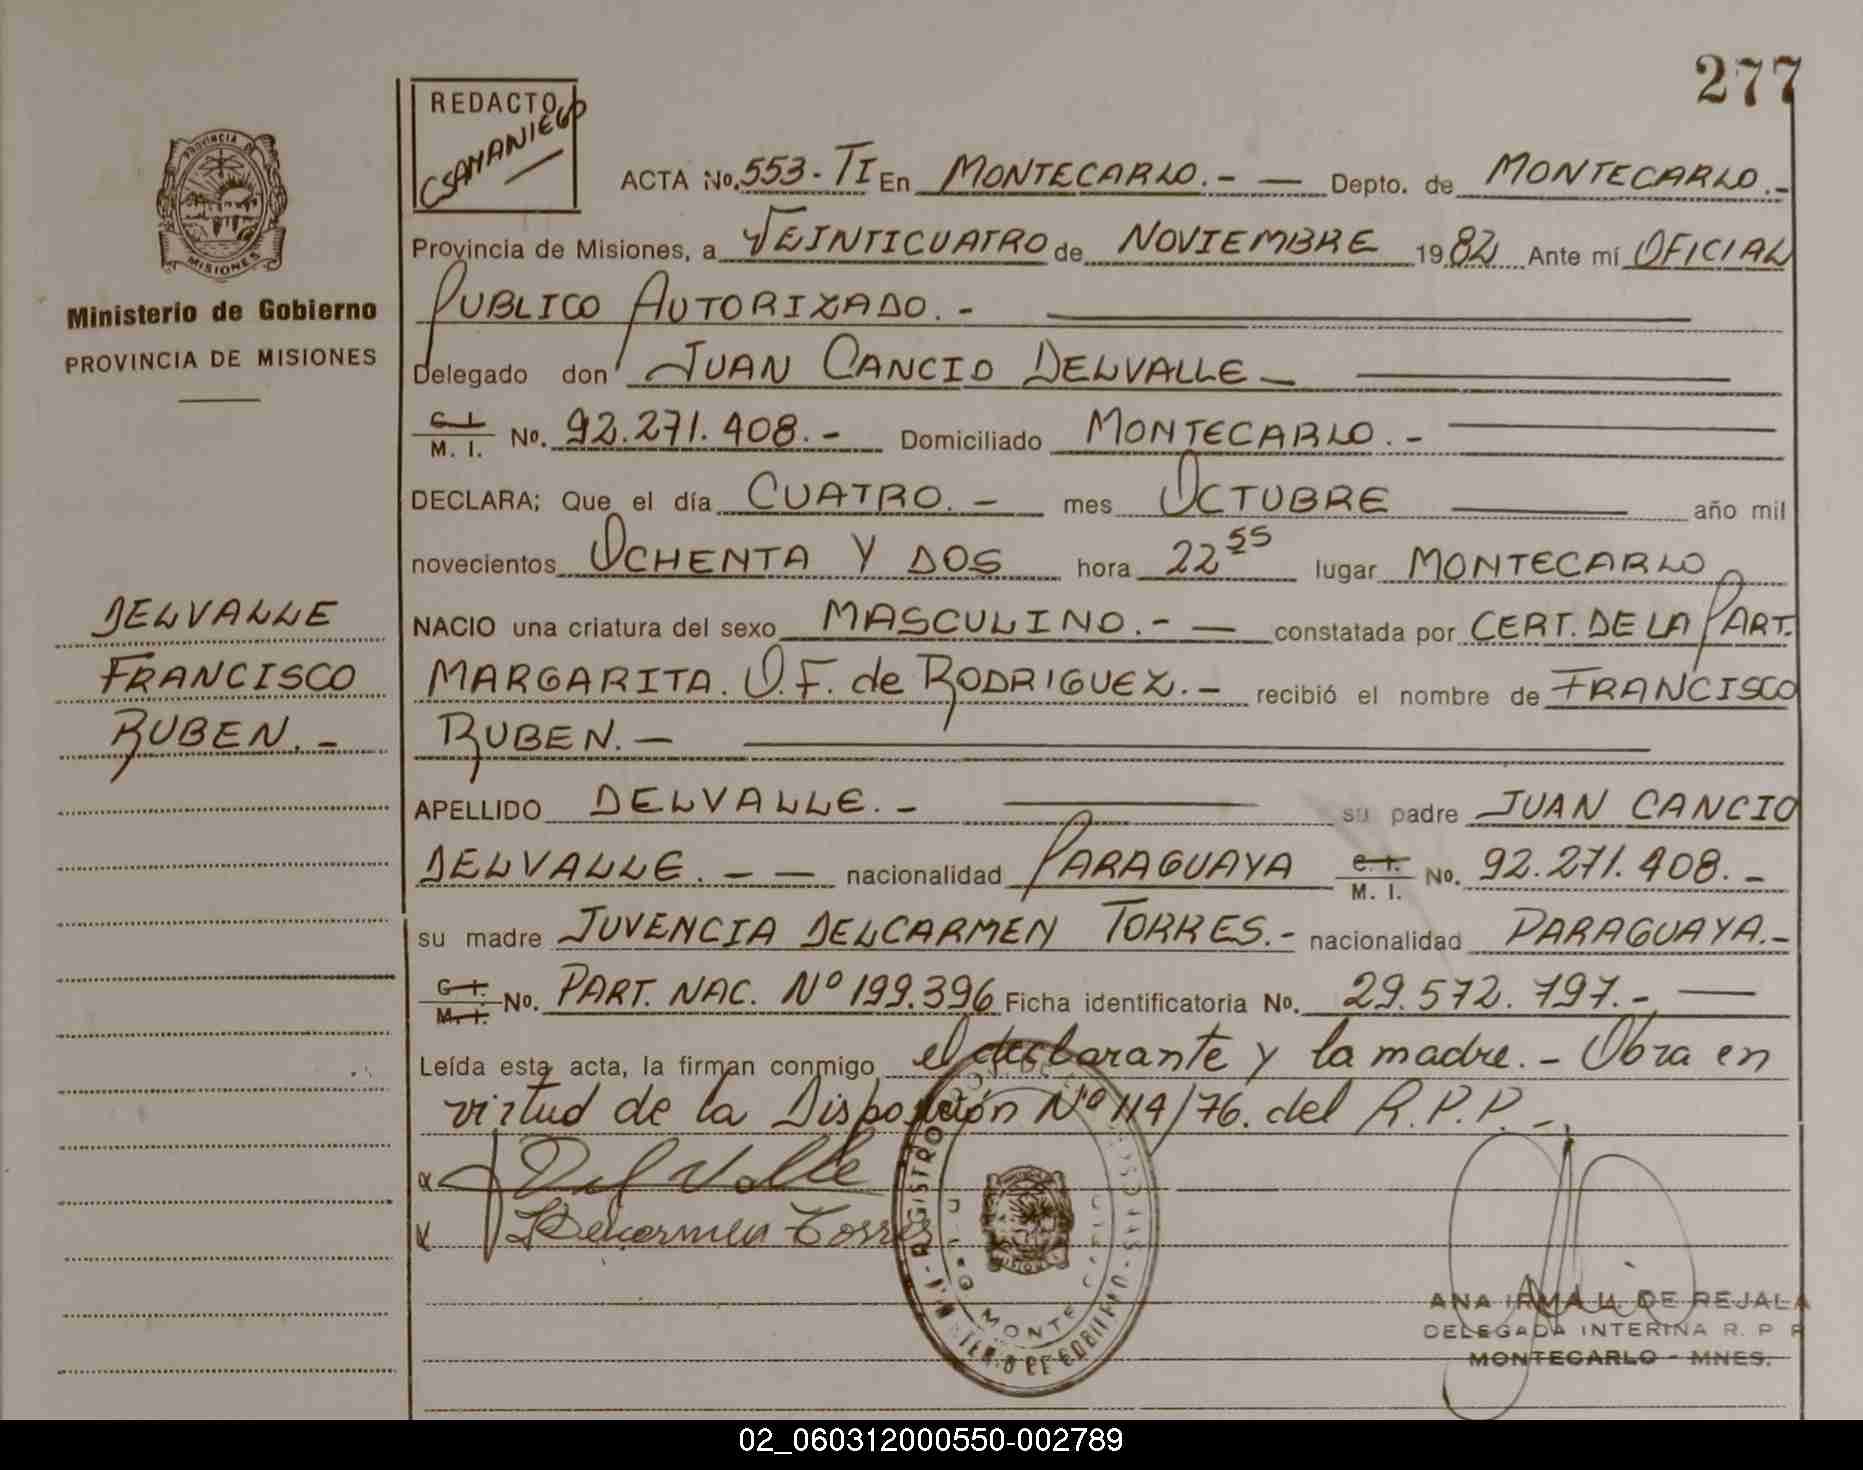 277
REDACTO
CSAMANIEGO
PROVINCIA DE
MISIONES
Ministerio de Gobierno
PROVINCIA DE MISIONES
ACTA No. 553-TI En MONTECARLO.- — Depto. de MONTECARLO.-
Provincia de Misiones, a VEINTICUATRO de NOVIEMBRE 1982 Ante mí OFICIAL
PUBLICO AUTORIZADO.-
Delegado don JUAN CANCIO DELVALLE —
C. I. M. I. No. 92.271.408.- Domiciliado MONTECARLO.-
DECLARA; Que el día CUATRO.- mes OCTUBRE año mil
novecientos OCHENTA Y DOS hora 22 55 lugar MONTECARLO
NACIO una criatura del sexo MASCULINO.- — constatada por CERT. DE LA PART.
MARGARITA. O.F. de RODRIGUEZ.- recibió el nombre de FRANCISCO
RUBEN.—
APELLIDO DELVALLE.- su padre JUAN CANCIO
DELVALLE.- — nacionalidad PARAGUAYA C. I. M. I. No. 92.271.408.-
su madre JUVENCIA DELCARMEN TORRES.- nacionalidad PARAGUAYA.-
C. I. M. I. No. PART. NAC. Nº 199.396 Ficha identificatoria No. 29.572.797.- —
Leída esta acta, la firman conmigo el declarante y la madre.- Obra en
virtud de la Disposición Nº 114/76. del R.P.P.-
DELVALLE
FRANCISCO
RUBEN.-
Del Valle
Delcarmen Torres
ANA IRMA U. DE REJALA
DELEGADA INTERINA R. P. P
MONTECARLO - MNES.
02_060312000550-002789